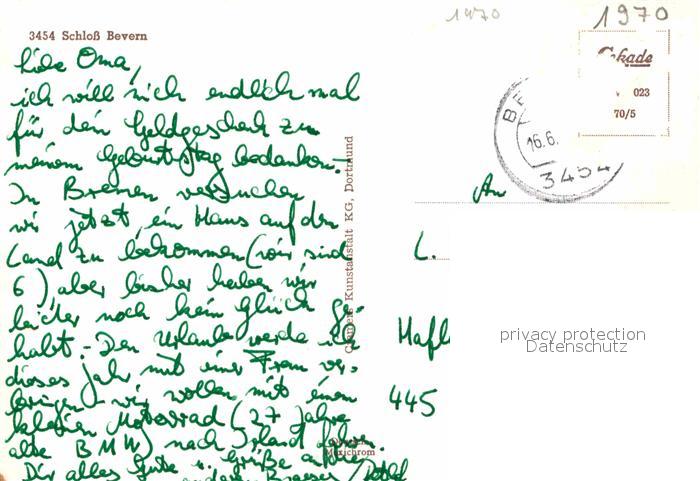 1970
1970
3454 Schloß Bevern
Cekade
023
70/5
16.6.
3454
Liebe Oma,
ich will mich endlich mal
für dein Geldgeschenk zu
meinem Geburtstag bedanken!
In Bremen versuchen
wir jetzt, ein Haus auf dem
Land zu bekommen (wir sind
6), aber bisher haben wir
leider noch kein Glück ge-
habt. - Den Urlaub werde ich
dieses Jahr mit einer Frau ver-
bringen, wir wollen mit einem
kleinen Motorrad (27 Jahre
alte BMW) nach Island fahren.
Dir alles Gute u. Grüße an
An
L.
Hafl
445
privacy protection
Datenschutz
Kunstanstalt KG, Dortmund